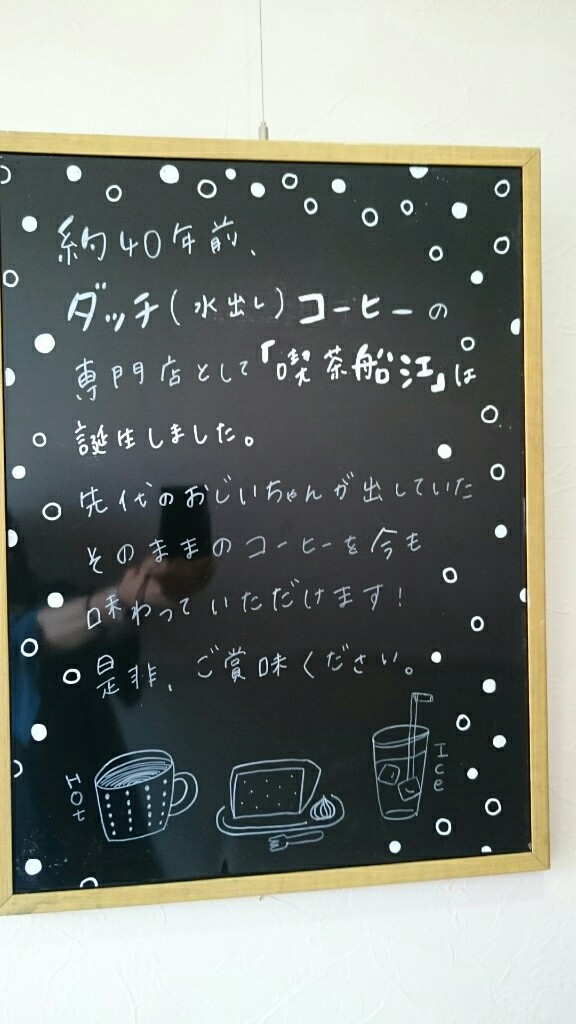 約40年前、
ダッチ(水出し)コーヒーの
専門店として「喫茶船江」は
誕生しました。
先代のおじいちゃんが出していた
そのままのコーヒーを今も
味わっていただけます！
是非、ご賞味ください。
Hot
Ice